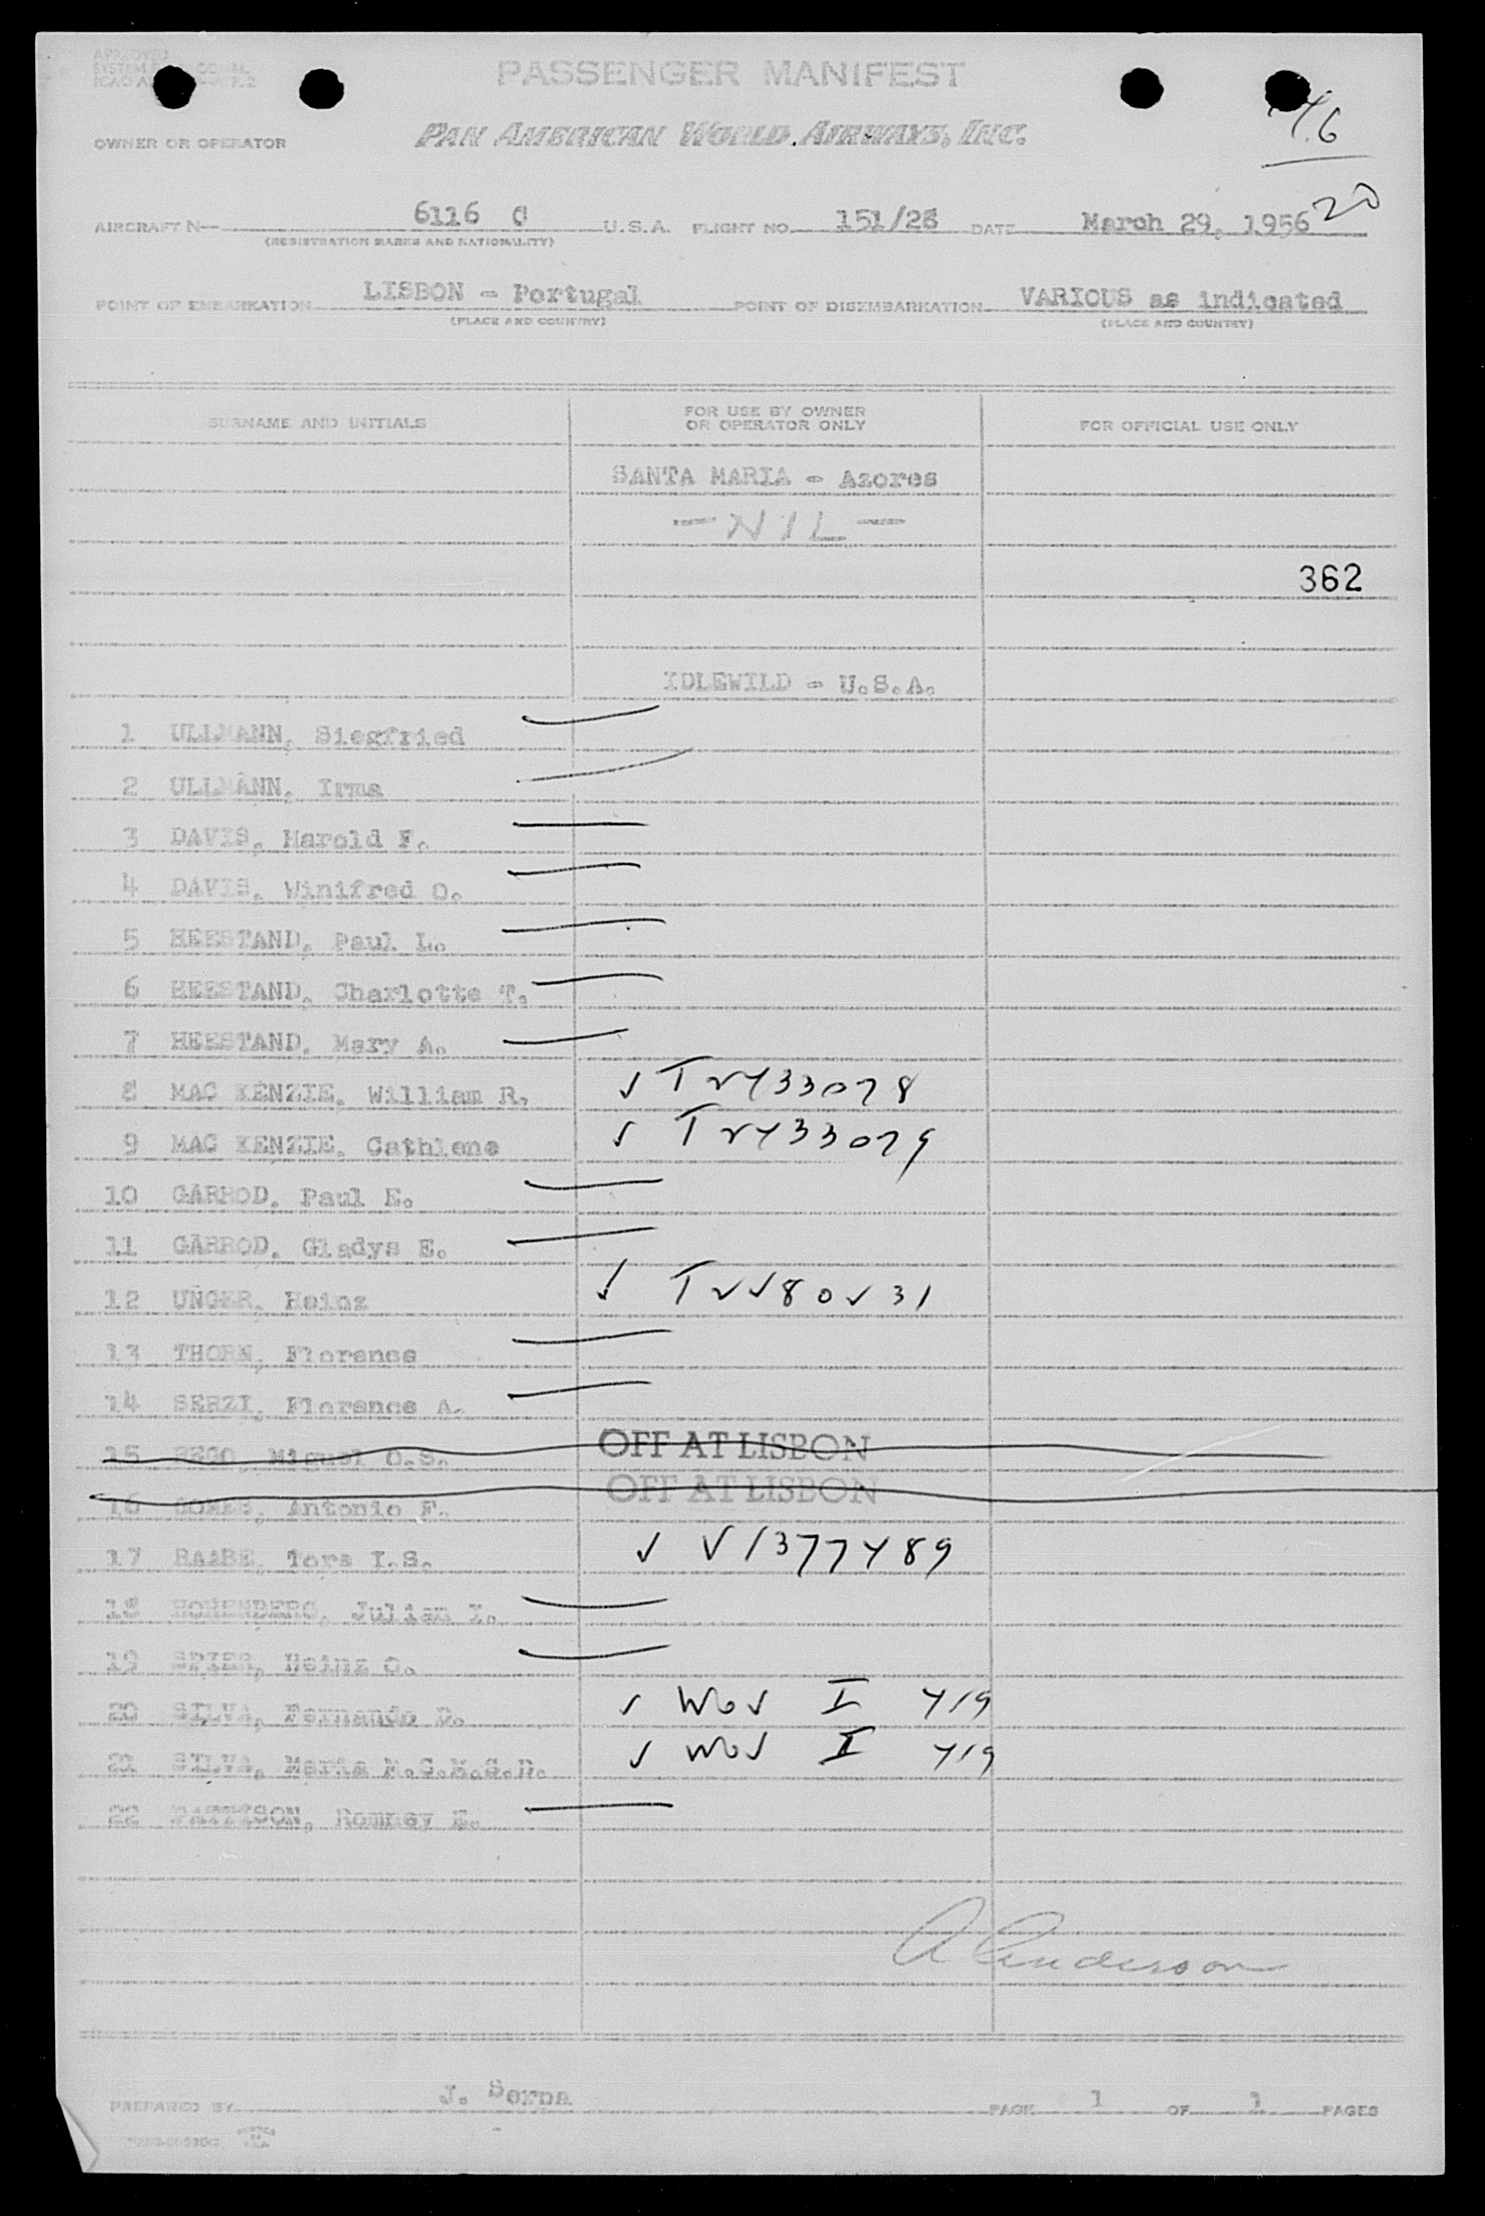 APPROVED
PASSENGER MANIFEST
OWNER OR OPERATOR PAN AMERICAN WORLD AIRWAYS, INC.
46
20
AIRCRAFT N— 6116 C U.S.A. FLIGHT NO. 151/28 DATE March 29, 1956
(REGISTRATION MARKS AND NATIONALITY)
POINT OF EMBARKATION LISBON - Portugal POINT OF DISEMBARKATION VARIOUS as indicated
(PLACE AND COUNTRY) (PLACE AND COUNTRY)
SURNAME AND INITIALS FOR USE BY OWNER OR OPERATOR ONLY FOR OFFICIAL USE ONLY
SANTA MARIA - Azores
- NIL -
362
IDLEWILD - U.S.A.
1 ULLMANN, Siegfried
2 ULLMANN, Irma
3 DAVIS, Harold F.
4 DAVIS, Winifred O.
5 HEESTAND, Paul L.
6 HEESTAND, Charlotte T.
7 HEESTAND, Mary A.
8 MAC KENZIE, William R. ✓ T2433078
9 MAC KENZIE, Cathlene ✓ T2433079
10 GARROD, Paul E.
11 GARROD, Gladys E.
12 UNGER, Heinz ✓ T2280231
13 THORN, Florence
14 SERZI, Florence A.
15 REGO, Miguel O.S. OFF AT LISBON
16 GOMES, Antonio F. OFF AT LISBON
17 RAABE, Tora I.S. ✓ V1377489
18 HOHENBERG, Julien I.
19 SPIER, Heinz O.
20 SILVA, Fernando D. ✓ I 419
21 SILVA, Maria ✓ I 419
22 PATTISON, Romney E.
A Anderson
PREPARED BY J. Serpa PAGE 1 OF 1 PAGES